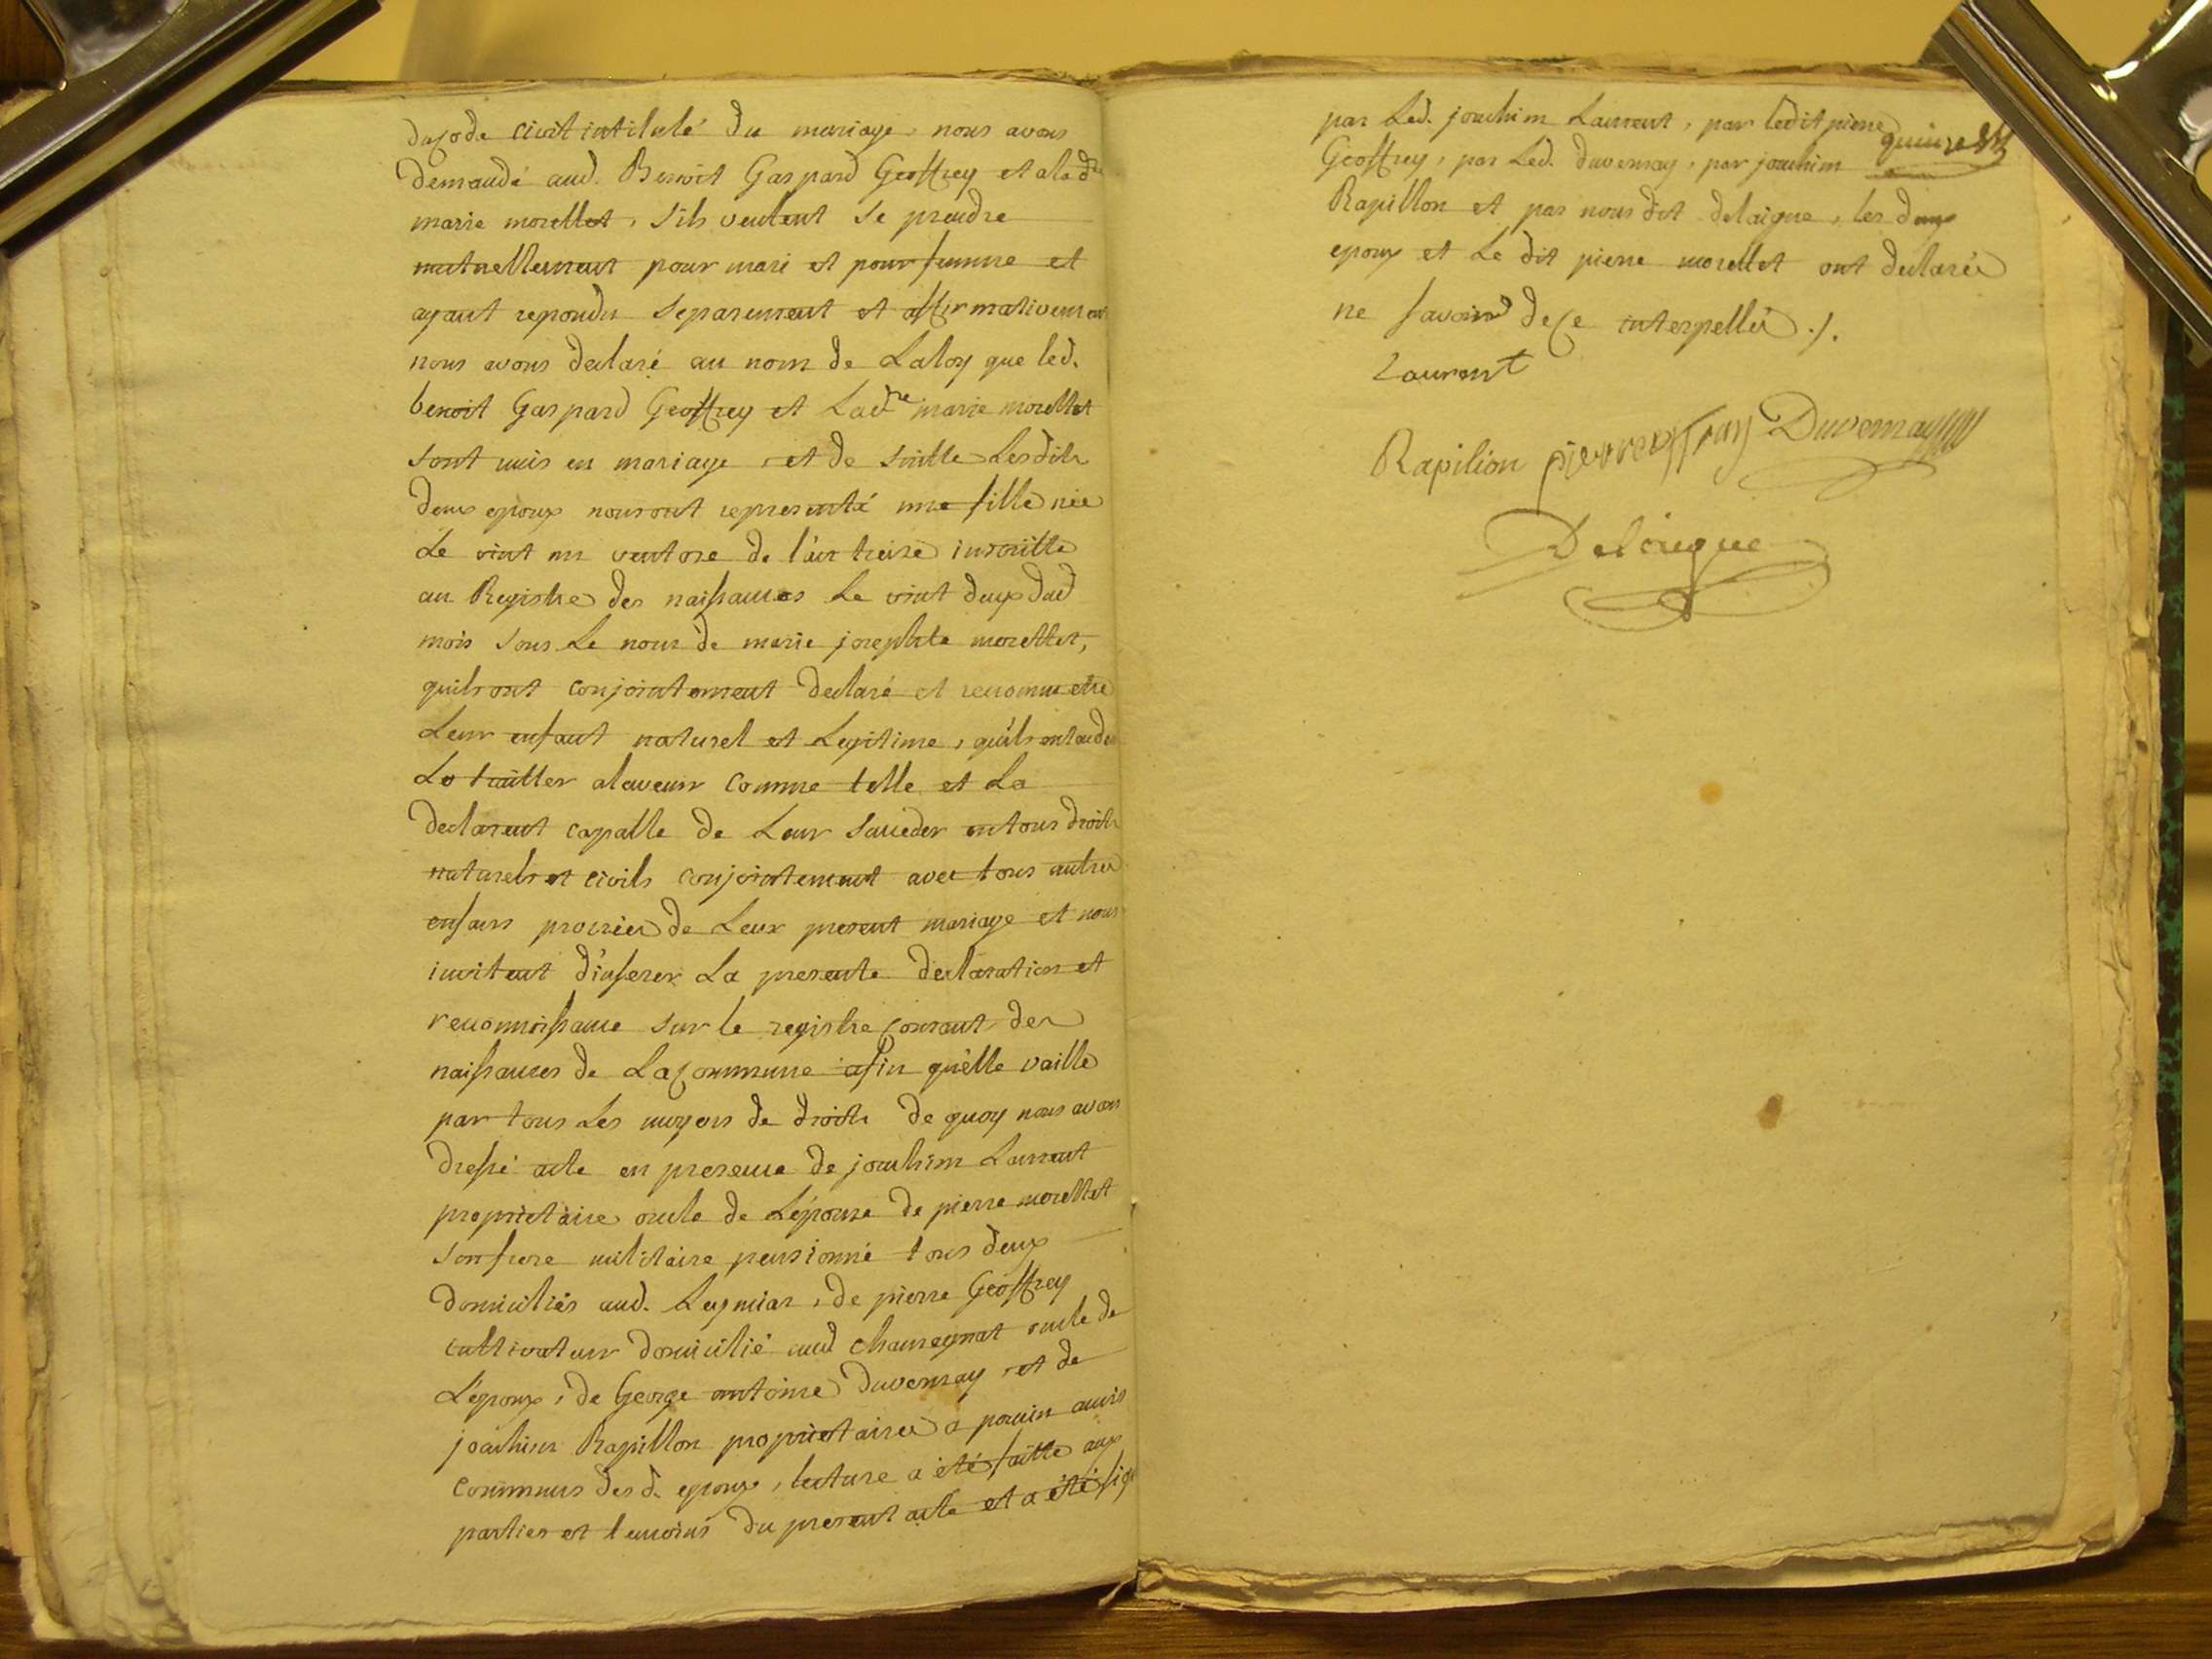 du Code civil intitulé du mariage, nous avons
demandé aud. Benoit Gaspard Geoffrey et alad.
marie morellet, s'ils veulent se prendre
mutuellement pour mari et pour femme et
ayant repondu separement et affirmativement
nous avons declaré au nom de Laloy que led.
benoit Gaspard Geoffrey et Lad.re marie morellet
sont unis en mariage, et de suitte Lesdits
deux epoux nous ont representé une fille née
Le vint un ventose de l'an treise inscritte
au Registre des naissances Le vint deux dud
mois sous Le nom de marie josephte morellet,
quils ont conjointement declaré et reconnu etre
Leur enfant naturel et Legitime, qu'ils entendent
La traitter alavenir comme telle et La
declarent capable de Leur succeder entous droits
naturels et civils conjointement avec tous autres
enfans procréés de Leur present mariage et nous
invitent d'inserer La presente declaration et
reconnoissance sur le registre courant des
naissances de La Commune afin qu'elle vaille
par tous Les moyens de droits de quoy nous avons
dressé acte en presence de joachim Laurent
proprietaire oncle de L'epouse de pierre morellet
son frere militaire pensionné tous deux
domiciliés aud. Leymiar, de pierre Geoffrey
cultivateur domicilié aud chaureynat oncle de
L'epoux, de George antoine Duvernay, et de
joachim Rapillon proprietaires a poncin amis
communs des d. epoux, lecture a été faitte aux
parties et temoins du present acte et a été sig
par Led. joachim Laurent, par ledit pierre
quinze
Geoffrey, par Led. duvernay, par joachim
Rapillon et par nous dit delaigue, les deux
epoux et Le dit pierre morellet ont declarés
ne savoir de ce interpellés ./.
Laurent
Rapilion pierre Duvernay
Delaigue